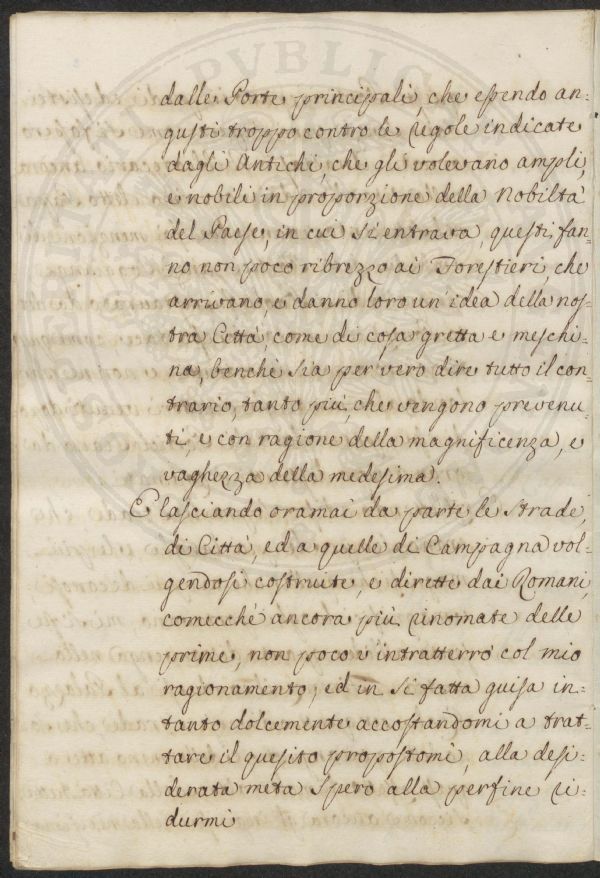 dalle Porte principali, che essendo an=
gusti troppo contro le regole indicate
dagli Antichi, che gli volevano ampli,
e nobili in proporzione della Nobiltà
del Paese, in cui si entrava, questi fan=
no non poco ribrezzo ai Forestieri, che
arrivano, e danno loro un' idea della nos=
tra Città, come di cosa gretta e meschi=
na, benchè sia per vero dire tutto il con=
trario, tanto più, che vengono prevenu=
ti, e con ragione della magnificenza, e
vaghezza della medesima.
E lasciando oramai da parte le Strade,
di Città, ed a quelle di Campagna vol=
gendosi costruite, e dirette dai Romani,
comecchè ancora più rinomate delle
prime, non poco v' intratterrò col mio
ragionamento, ed in si fatta guisa in=
tanto dolcemente accostandomi a trat=
tare il quesito propostomi, alla desi=
derata meta spero alla perfine ri=
durmi